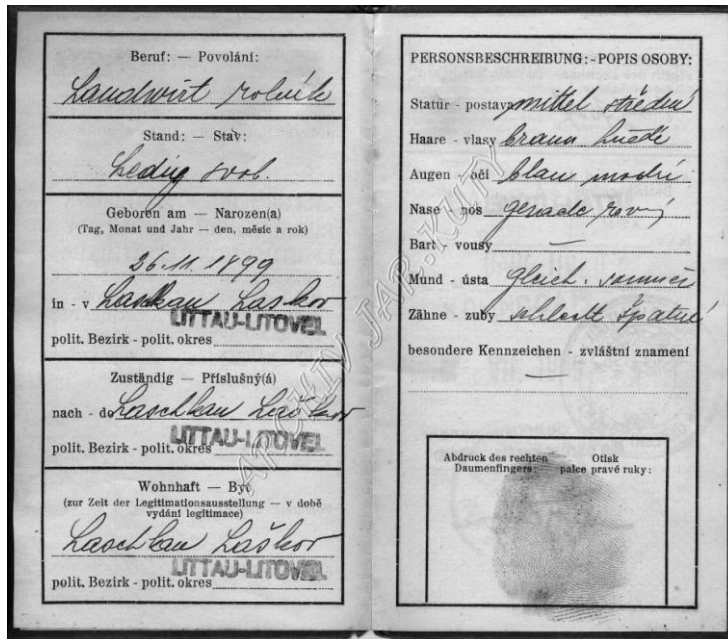 Beruf: — Povolání:
Landwirt rolník
Stand: — Stav:
Ledig svob.
Geboren am — Narozen(a)
(Tag, Monat und Jahr — den, měsíc a rok)
26.11.1899
in - v Laschkau Laškov
LITTAU-LITOVEL
polit. Bezirk - polit. okres
Zuständig — Příslušný(á)
nach - do Laschkau Laškov
LITTAU-LITOVEL
polit. Bezirk - polit. okres
Wohnhaft — Byt
(zur Zeit der Legitimationsausstellung — v době
vydání legitimace)
Laschkau Laškov
LITTAU-LITOVEL
polit. Bezirk - polit. okres
PERSONSBESCHREIBUNG: - POPIS OSOBY:
Statur - postava mittel střední
Haare - vlasy braun hnědé
Augen - oči blau modrí
Nase - nos gerade rovný
Bart - vousy —
Mund - ústa gleich.
Zähne - zuby schlecht špatné
besondere Kennzeichen - zvláštní znamení
—
Abdruck des rechten Daumenfingers: Otisk palce pravé ruky:
ARCHIV JAR. KUTY